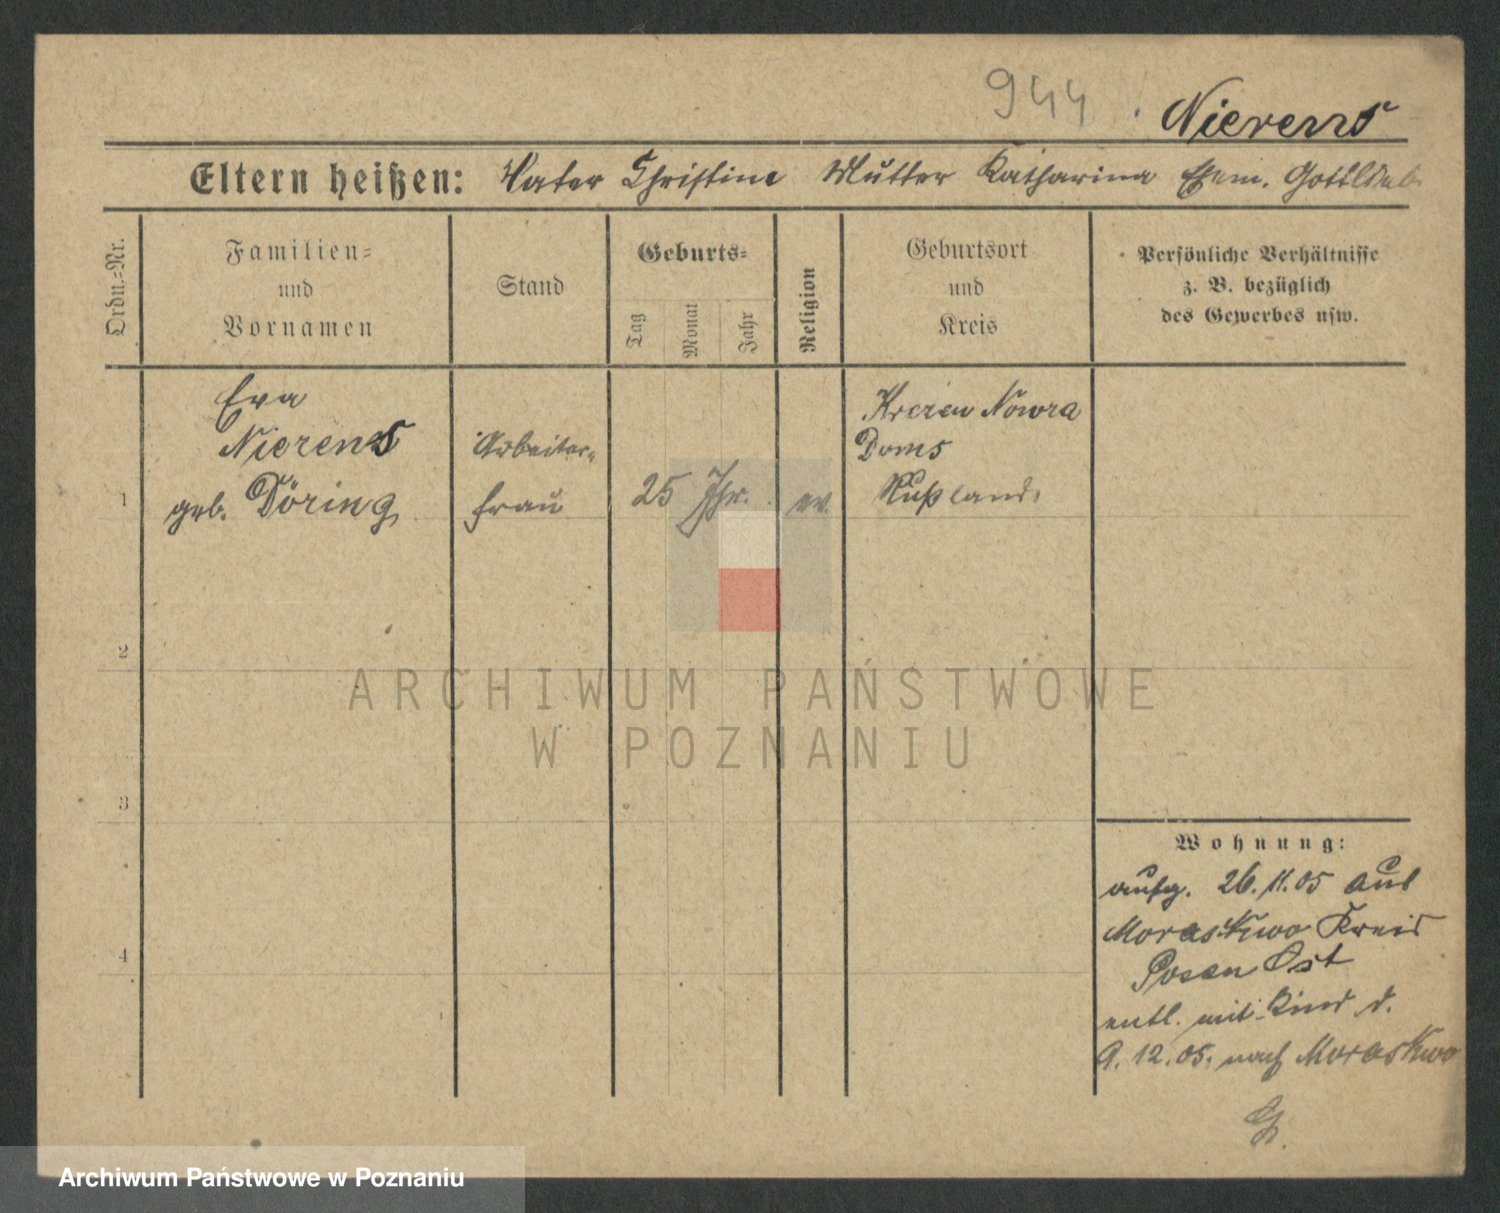 944
Nierens
Eltern heißen: Vater Christine Mutter Katharina Gottlieb
Ordn.=Nr.
Familien=
und
Vornamen
Stand
Geburts=
Tag
Monat
Jahr
Religion
Geburtsort
und
Kreis
Persönliche Verhältnisse
z. B. bezüglich
des Gewerbes usw.
1
Eva
Nierens
geb. Döring
Arbeiter=
frau
25 Jhr.
ev.
Nowra
Doms
Rußland.
2
3
4
Wohnung:
aufg. 26.11.05 aus
Moraskwo Kreis
Posen Ost
entl. mit Kind d.
9.12.05. nach Moraskwo
ARCHIWUM PAŃSTWOWE
W POZNANIU
Archiwum Państwowe w Poznaniu